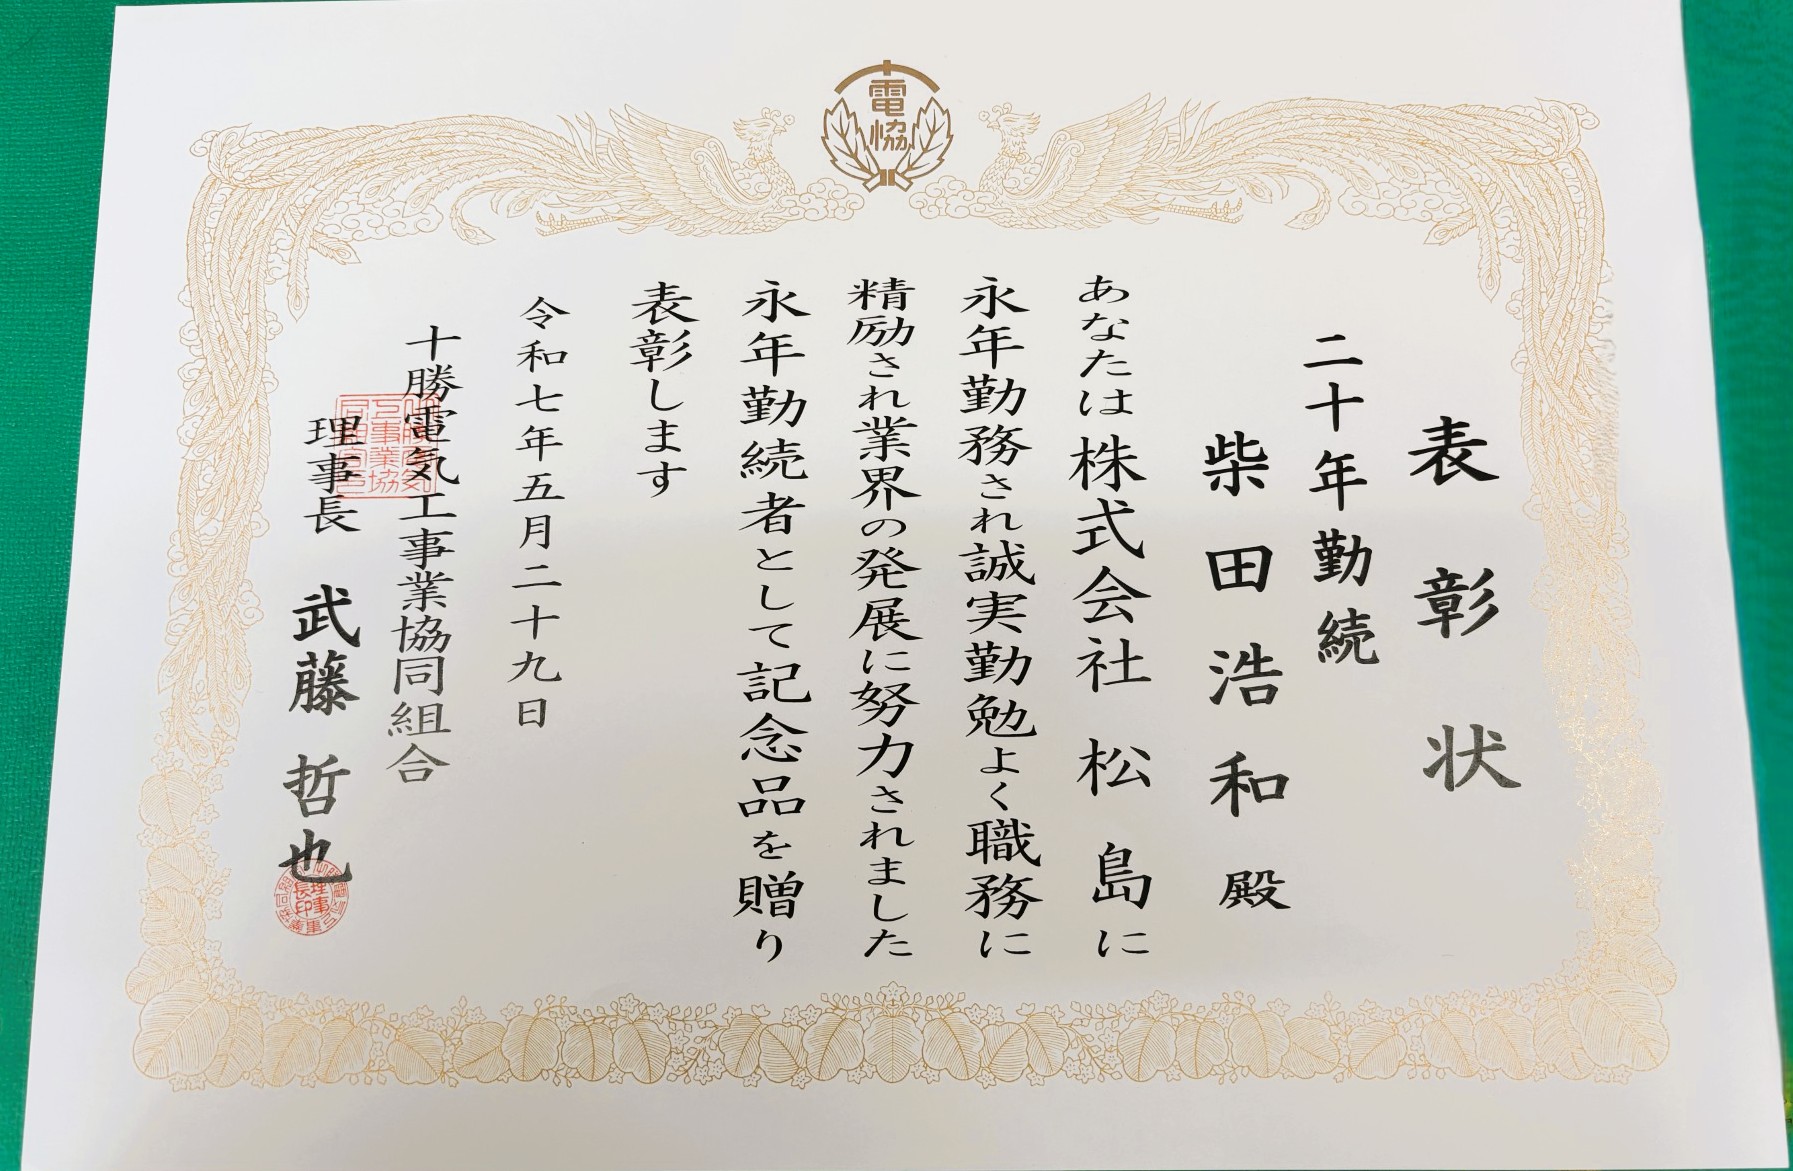 電協
表彰状
二十年勤続
柴田浩和殿
あなたは株式会社松島に
永年勤務され誠実勤勉よく職務に
精励され業界の発展に努力されました
永年勤続者として記念品を贈り
表彰します
令和七年五月二十九日
十勝電気工事業協同組合
理事長 武藤哲也
理事長印